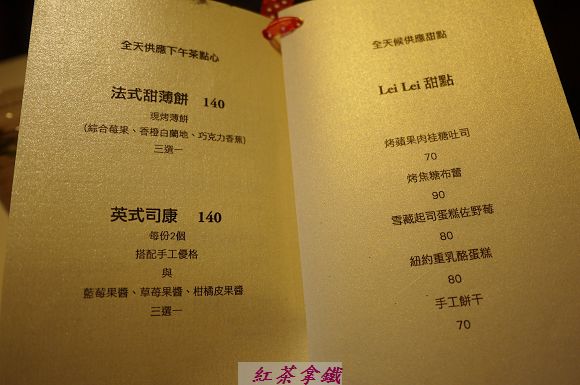 全天供應下午茶點心
法式甜薄餅 140
現烤薄餅
(綜合莓果、香橙白蘭地、巧克力香蕉)
三選一
英式司康 140
每份2個
搭配手工優格
與
藍莓果醬、草苺果醬、柑橘皮果醬
三選一
全天候供應甜點
Lei Lei 甜點
烤蘋果肉桂糖吐司
70
烤焦糖布蕾
90
雪藏起司蛋糕佐野莓
80
紐約重乳酪蛋糕
80
手工餅干
70
紅茶拿鐵